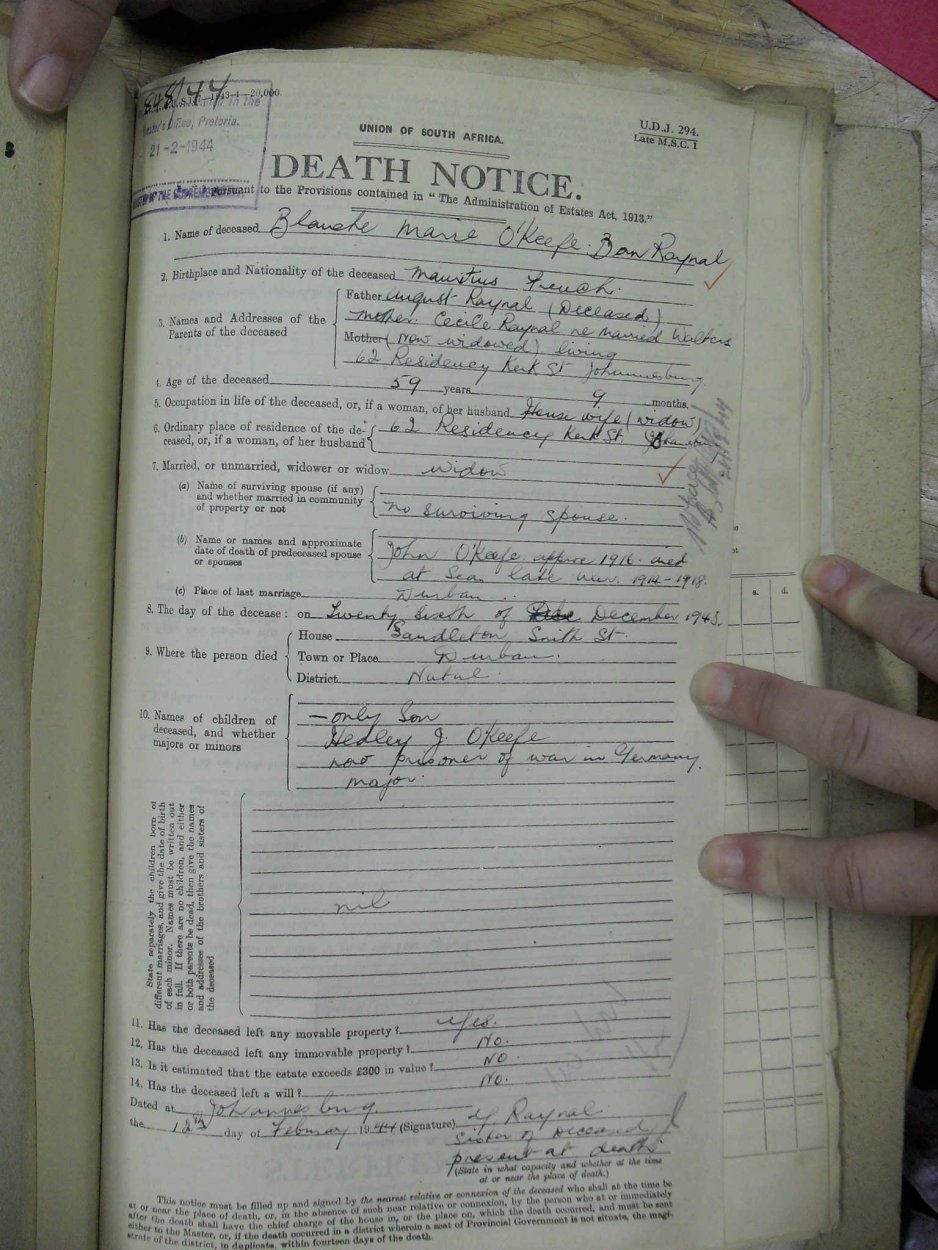 848/44
1943-4—20,000.
Master's Office, Pretoria.
21-2-1944
UNION OF SOUTH AFRICA.
U.D.J. 294.
Late M.S.C. 1
DEATH NOTICE.
Pursuant to the Provisions contained in "The Administration of Estates Act, 1913."
1. Name of deceased Blanche Marie O'Keefe. Born Raynal
2. Birthplace and Nationality of the deceased Mauritius French.
3. Names and Addresses of the Parents of the deceased
Father August Raynal (Deceased)
Mother: Cecile Raynal re married Walters
Mother (now widowed) living
62 Residency Kerk St Johannesburg
4. Age of the deceased 59 years 9 months.
5. Occupation in life of the deceased, or, if a woman, of her husband House wife (widow)
6. Ordinary place of residence of the de-
ceased, or, if a woman, of her husband
62 Residency Kerk St. Johannesburg
7. Married, or unmarried, widower or widow widow
(a) Name of surviving spouse (if any)
and whether married in community
of property or not
no surviving spouse.
(b) Name or names and approximate
date of death of predeceased spouse
or spouses
John O'Keefe. approx 1916. died
at Sea late war. 1914-1918.
(c) Place of last marriage Durban
8. The day of the decease: on Twenty Sixth of December 1943.
9. Where the person died
House Sandleton, Smith St.
Town or Place Durban.
District Natal.
10. Names of children of
deceased, and whether
majors or minors
— only Son
Hedley J. O'Keefe
now prisoner of war in Germany.
major.
State separately the children born of
different marriages, and give the date of birth
of each minor. Names must be written out
in full. If there are no children, and either
or both parents be dead, then give the names
and addresses of the brothers and sisters of
the deceased
nil
11. Has the deceased left any movable property? Yes.
12. Has the deceased left any immovable property? No.
13. Is it estimated that the estate exceeds £300 in value? No
14. Has the deceased left a will? No.
Dated at Johannesburg
the 12th day of February 1944 (Signature) Y Raynal.
Sister of Deceased
present at death
(State in what capacity and whether at the time
at or near the place of death.)
This notice must be filled up and signed by the nearest relative or connexion of the deceased who shall at the time be
at or near the place of death, or, in the absence of such near relative or connexion, by the person who at or immediately
after the death shall have the chief charge of the house in, or the place on, which the death occurred, and must be sent
either to the Master, or, if the death occurred in a district wherein a seat of Provincial Government is not situate, the magi-
strate of the district, in duplicate, within fourteen days of the death.
s. d.